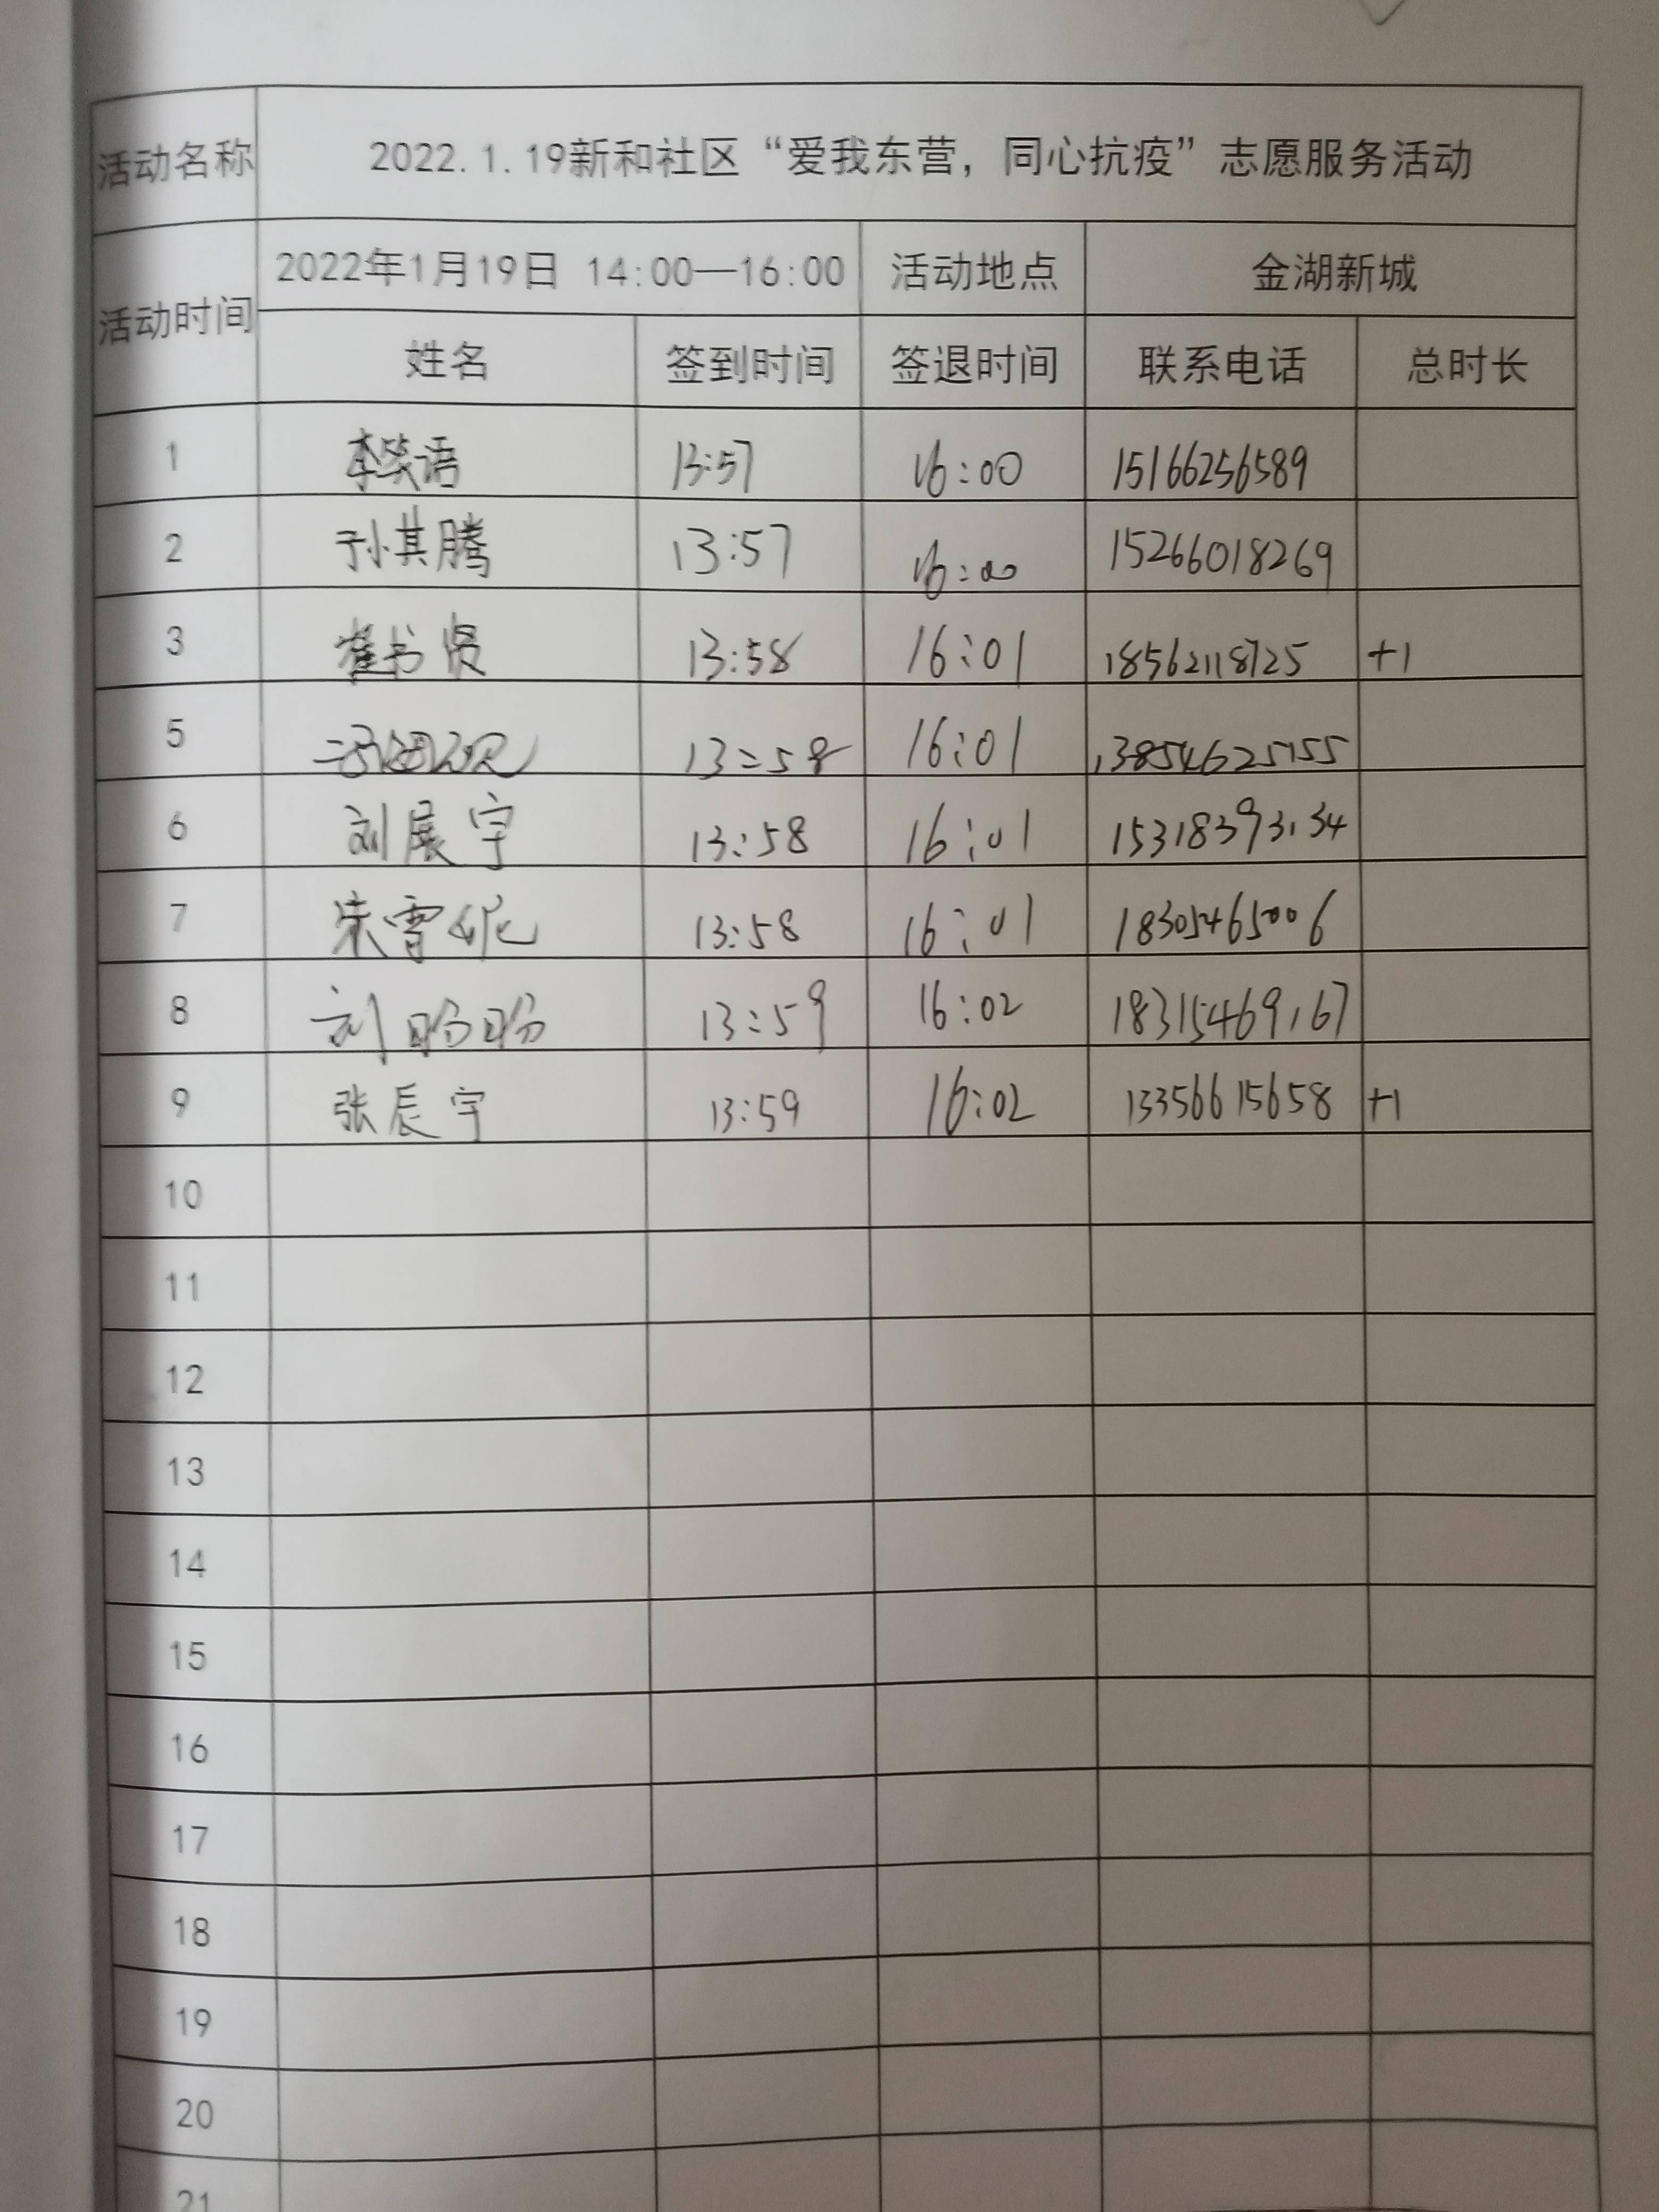 活动名称 2022.1.19新和社区“爱我东营，同心抗疫”志愿服务活动
活动时间 2022年1月19日 14:00—16:00 活动地点 金湖新城
姓名 签到时间 签退时间 联系电话 总时长
1 李笑语 13:57 16:00 15166256589
2 孙其腾 13:57 16:00 15266018269
3 崔书贤 13:58 16:01 18562118725 +1
5 13:58 16:01 13854625155
6 刘展宇 13:58 16:01 15318393134
7 朱雪妮 13:58 16:01 18305465006
8 刘盼盼 13:59 16:02 18315469167
9 张辰宇 13:59 16:02 13356615658 +1
10
11
12
13
14
15
16
17
18
19
20
21